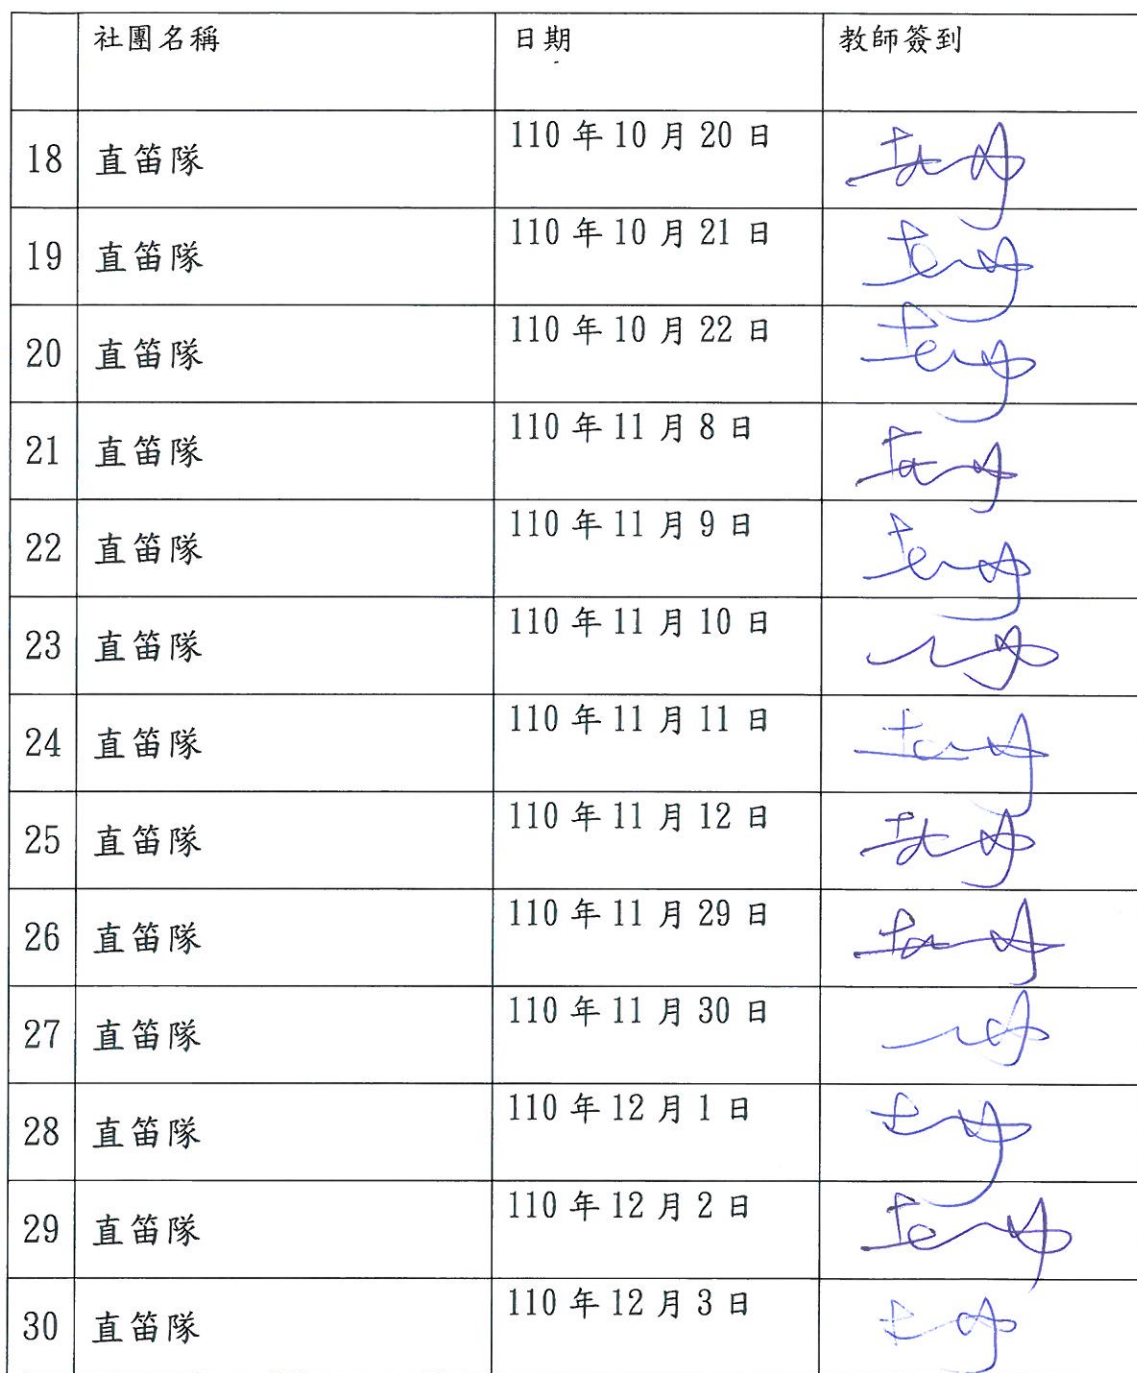 社團名稱 日期 教師簽到
18 直笛隊 110 年 10 月 20 日
19 直笛隊 110 年 10 月 21 日
20 直笛隊 110 年 10 月 22 日
21 直笛隊 110 年 11 月 8 日
22 直笛隊 110 年 11 月 9 日
23 直笛隊 110 年 11 月 10 日
24 直笛隊 110 年 11 月 11 日
25 直笛隊 110 年 11 月 12 日
26 直笛隊 110 年 11 月 29 日
27 直笛隊 110 年 11 月 30 日
28 直笛隊 110 年 12 月 1 日
29 直笛隊 110 年 12 月 2 日
30 直笛隊 110 年 12 月 3 日